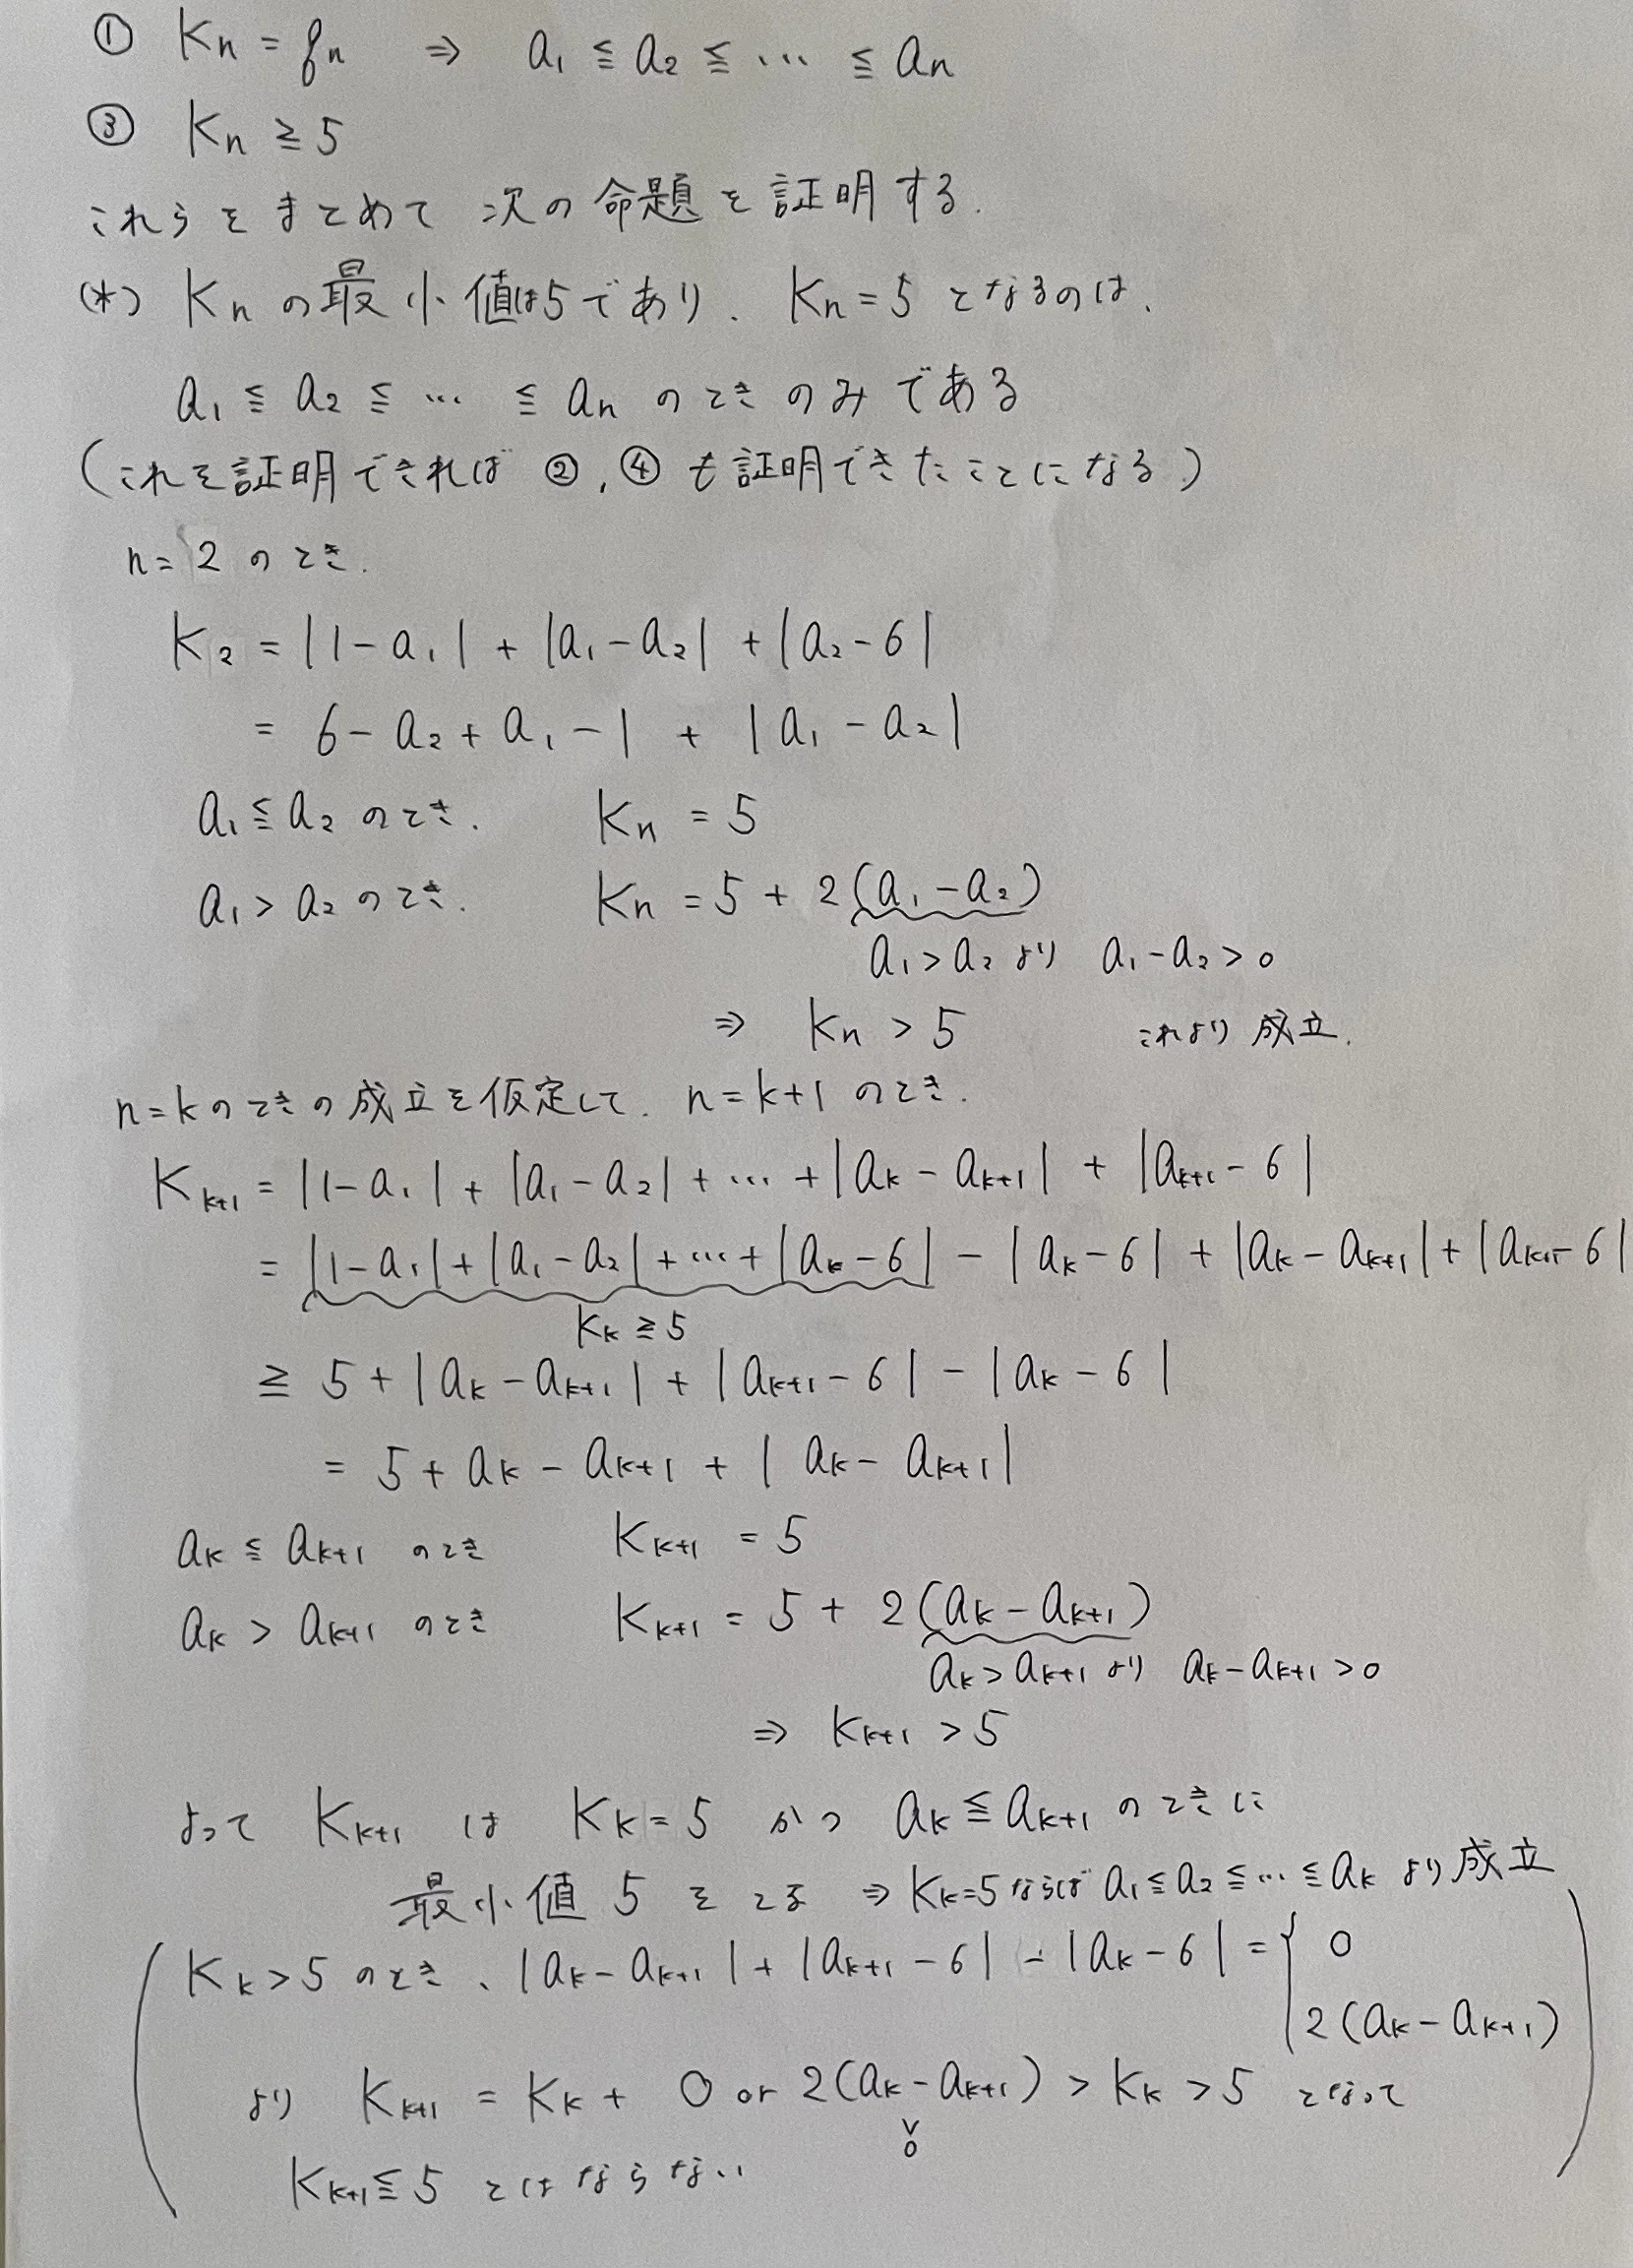 ① Kn = qn ⇒ a1 ≦ a2 ≦ … ≦ an
③ Kn ≧ 5
これらをまとめて 次の命題を証明する.
(*) Kn の最小値は5であり. Kn = 5 となるのは.
a1 ≦ a2 ≦ … ≦ an のときのみである
(これを証明できれば ②, ④ も証明できたことになる)
n = 2 のとき.
K2 = |1 - a1| + |a1 - a2| + |a2 - 6|
= 6 - a2 + a1 - 1 + |a1 - a2|
a1 ≦ a2 のとき. Kn = 5
a1 > a2 のとき. Kn = 5 + 2(a1 - a2)
a1 > a2 より a1 - a2 > 0
⇒ Kn > 5 これより 成立.
n = k のときの成立を仮定して. n = k+1 のとき.
Kk+1 = |1 - a1| + |a1 - a2| + … + |ak - ak+1| + |ak+1 - 6|
= |1 - a1| + |a1 - a2| + … + |ak - 6| - |ak - 6| + |ak - ak+1| + |ak+1 - 6|
Kk ≧ 5
≧ 5 + |ak - ak+1| + |ak+1 - 6| - |ak - 6|
= 5 + ak - ak+1 + |ak - ak+1|
ak ≦ ak+1 のとき Kk+1 = 5
ak > ak+1 のとき Kk+1 = 5 + 2(ak - ak+1)
ak > ak+1 より ak - ak+1 > 0
⇒ Kk+1 > 5
よって Kk+1 は Kk = 5 かつ ak ≦ ak+1 のときに
最小値 5 をとる ⇒ Kk = 5 ならば a1 ≦ a2 ≦ … ≦ ak より成立
(Kk > 5 のとき、|ak - ak+1| + |ak+1 - 6| - |ak - 6| = { 0
2(ak - ak+1)
より Kk+1 = Kk + 0 or 2(ak - ak+1) > Kk > 5 となって
∨
0
Kk+1 ≦ 5 とはならない)